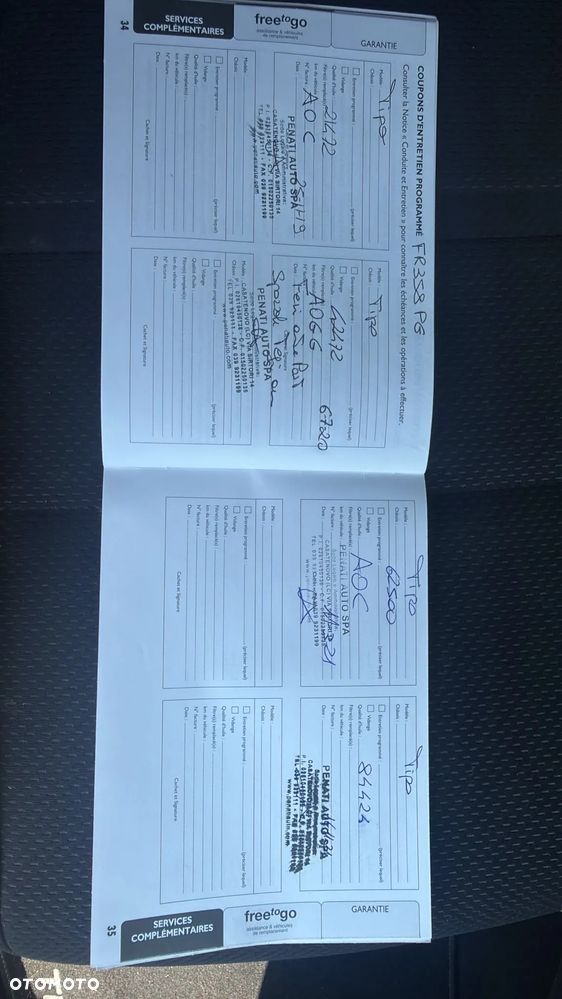 GARANTIE
freetogo
assistance & véhicules
de remplacement
SERVICES
COMPLÉMENTAIRES
34
COUPONS D'ENTRETIEN PROGRAMMÉ FR358PG
Consulter la Notice « Conduite et Entretien » pour connaître les échéances et les opérations à effectuer.
Modèle : Tipo
Châssis :
Entretien programmé : (préciser lequel)
Vidange
Qualité d'huile : 21472
Filtre(s) remplacé(s) :
km du véhicule : AOC
N° facture :
Date :
PENATI AUTO SPA
CASATENOVO (LC) VIA SIRTORI 14
TEL 039 923111 - FAX 039 9231199
www.penatiauto.com
Modèle : Tipo
Châssis :
Entretien programmé : (préciser lequel)
Vidange
Qualité d'huile : 42472
Filtre(s) remplacé(s) : 6720
km du véhicule :
N° facture :
Date :
PENATI AUTO SPA
CASATENOVO (LC) VIA SIRTORI 14
TEL 039 923111 - FAX 039 9231199
www.penatiauto.com
Modèle :
Châssis :
Entretien programmé : (préciser lequel)
Vidange
Qualité d'huile :
Filtre(s) remplacé(s) :
km du véhicule :
N° facture :
Date :
Cachet et Signature
Châssis :
Entretien programmé : (préciser lequel)
Vidange
Qualité d'huile :
Filtre(s) remplacé(s) :
km du véhicule :
N° facture :
Date :
Cachet et Signature
Modèle : Tipo
Châssis : 62500
Entretien programmé : (préciser lequel)
Vidange
Qualité d'huile : AOC
Filtre(s) remplacé(s) :
km du véhicule :
N° facture :
Date :
PENATI AUTO SPA
CASATENOVO (LC) VIA SIRTORI
Modèle : Tipo
Châssis :
Entretien programmé : (préciser lequel)
Vidange
Qualité d'huile : 84424
Filtre(s) remplacé(s) :
km du véhicule :
N° facture :
Date :
PENATI AUTO SPA
www.penatiauto.com
Modèle :
Châssis :
Entretien programmé : (préciser lequel)
Vidange
Qualité d'huile :
Filtre(s) remplacé(s) :
km du véhicule :
N° facture :
Date :
Cachet et Signature
Modèle :
Châssis :
Entretien programmé : (préciser lequel)
Vidange
Qualité d'huile :
Filtre(s) remplacé(s) :
km du véhicule :
N° facture :
Date :
Cachet et Signature
GARANTIE
freetogo
assistance & véhicules
de remplacement
SERVICES
COMPLÉMENTAIRES
35
OTOMOTO